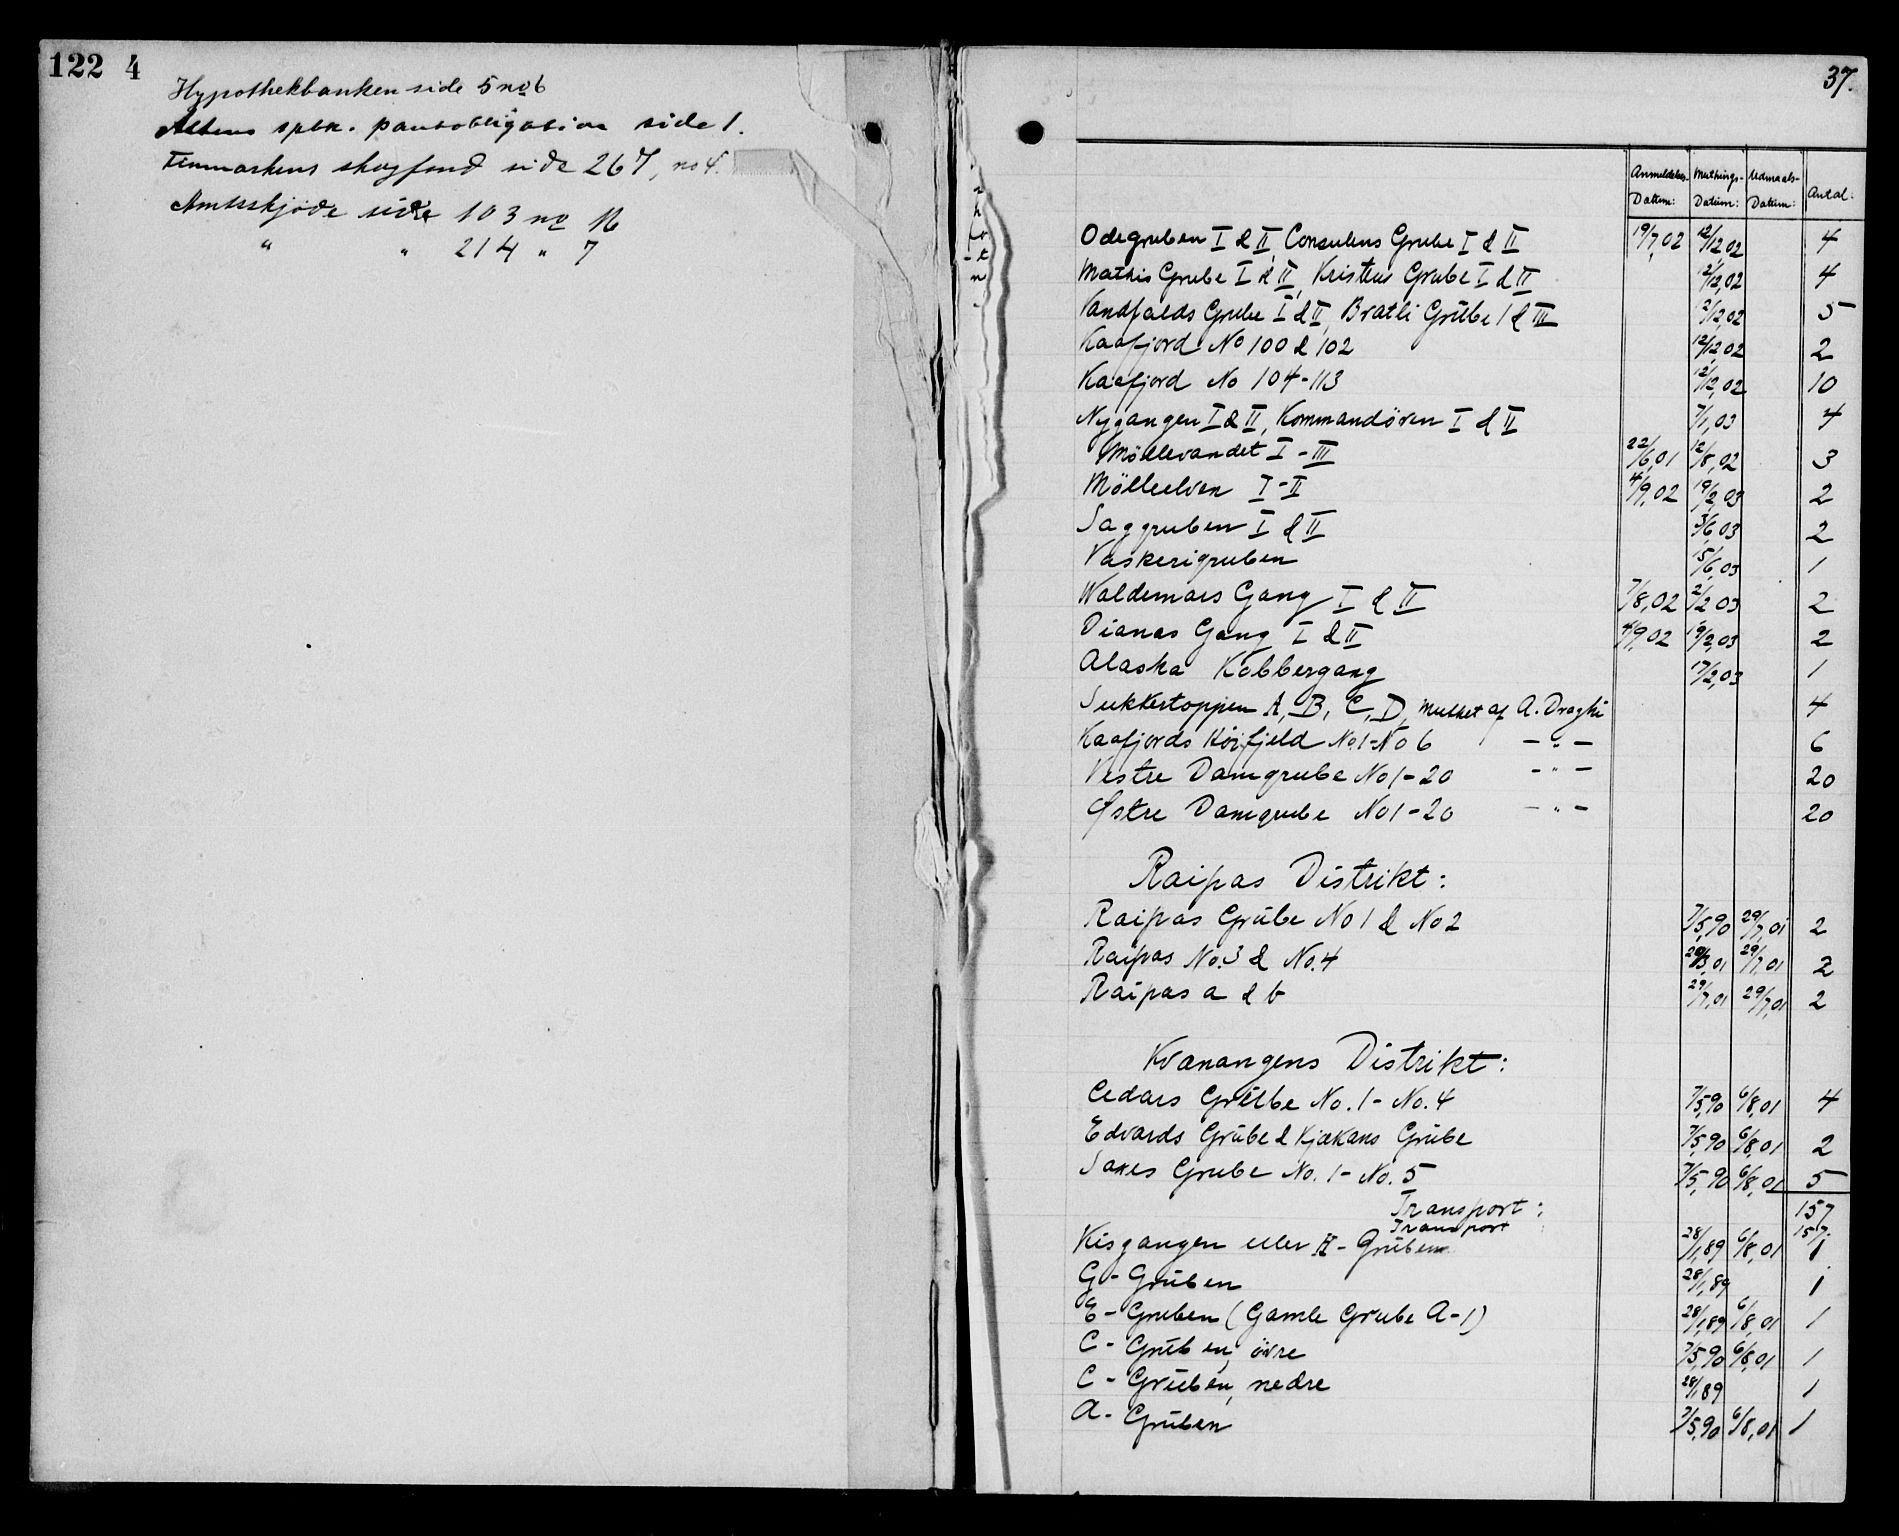 122 4
Hypothekbanken side 5 no 6
Altens spbk. pantobligation side 1.
Finmarkens skogfond side 267, no 4.
Amtsskjøde side 103 no 16
" " 214 " 7
37.
Anmeldelses- Datum: Muthings- Datum: Udmaals- Datum: Antal:
Odegruben I & II, Consulens Grube I & II 19/7,02 12/12 02 4
Mathis Grube I & II, Kristens Grube I & II 12/12,02 4
Vandfalds Grube I & II, Bratli Grube I & III 12/12,02 5
Kaafjord No 100 & 102 12/12,02 2
Kaafjord No 104-113 12/12,02 10
Nygangen I & II, Kommandøren I & II 7/1,03 4
Möllevandet I - III 22/6,01 12/8,02 3
Mölleelven I - II 4/9,02 19/2,03 2
Saggruben I & II 3/6,03 2
Vaskerigruben 15/6,03 1
Waldemars Gang I & II 7/8,02 2/2 03 2
Dianas Gang I & II 4/9,02 19/2,03 2
Alaska Kobbergang 17/2,03 1
Sukkertoppen A, B, C, D, muthet af A. Draghi 4
Kaafjords Köifjeld No 1-No 6 - " - 6
Vestre Damgrube No 1-20 - " - 20
Østre Damgrube No 1-20 - " - 20
Raipas Distrikt:
Raipas Grube No 1 & No 2 7/5,90 29/7,01 2
Raipas No. 3 & No. 4 20/3 01 29/7,01 2
Raipas a & b 29/7,01 29/7,01 2
Kvanangens Distrikt:
Cedars Grube No. 1 - No. 4 7/5,90 6/8,01 4
Edvards Grube & Kjækans Grube 7/5,90 6/8,01 2
Saxes Grube No. 1 - No. 5 7/5,90 6/8,01 5
Transport: 157
Transport 157.
Kisgangen eller H - Gruben 28/1,89 6/8,01 1
G - Gruben 28/1,89 1
E - Gruben (Gamle Grube A-1) 28/1,89 6/8,01 1
C - Gruben, övre 7/5,90 6/8,01 1
C - Gruben, nedre 28/1,89 1
A - Gruben 7/5,90 6/8,01 1